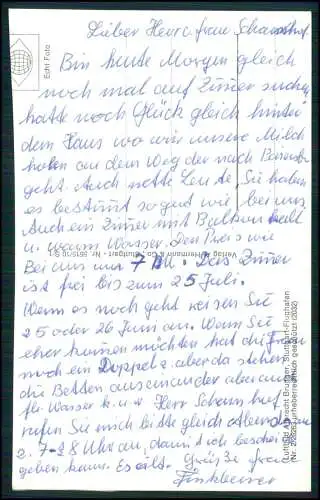 Lieber Herr u. frau Schar
Bin heute Morgen gleich
noch mal auf Zimer suchen
hatte noch Glück gleich hinter
dem Haus wo wir unsere Milch
holen an dem Weg der nach
geht. Auch nette Leute. Sie haben
es bestimt so gut wie bei uns
Auch ein Zimer mit Balkon kalt
u. warm Wasser. Der Preis wie
Bei uns nur 7 DM. Das Zimer
ist frei bis zum 25 Juli.
Wenn es noch geht reisen Sie
25 oder 26 Juni an. Wenn Sie
eher kommen möchten hat die Frau
noch ein Doppelz. aber da stehen
die Betten auseinander aber auch
fl. Wasser k. u. w. Herr
rufen Sie mich bitte gleich
z. 7-8 Uhr an, damit ich bescheid
geben kann. Es eilt. Grüße frau
Echt Foto
Verlag Schöning & Co
Luftbild Albrecht Brugger, Stuttgart-Flughafen